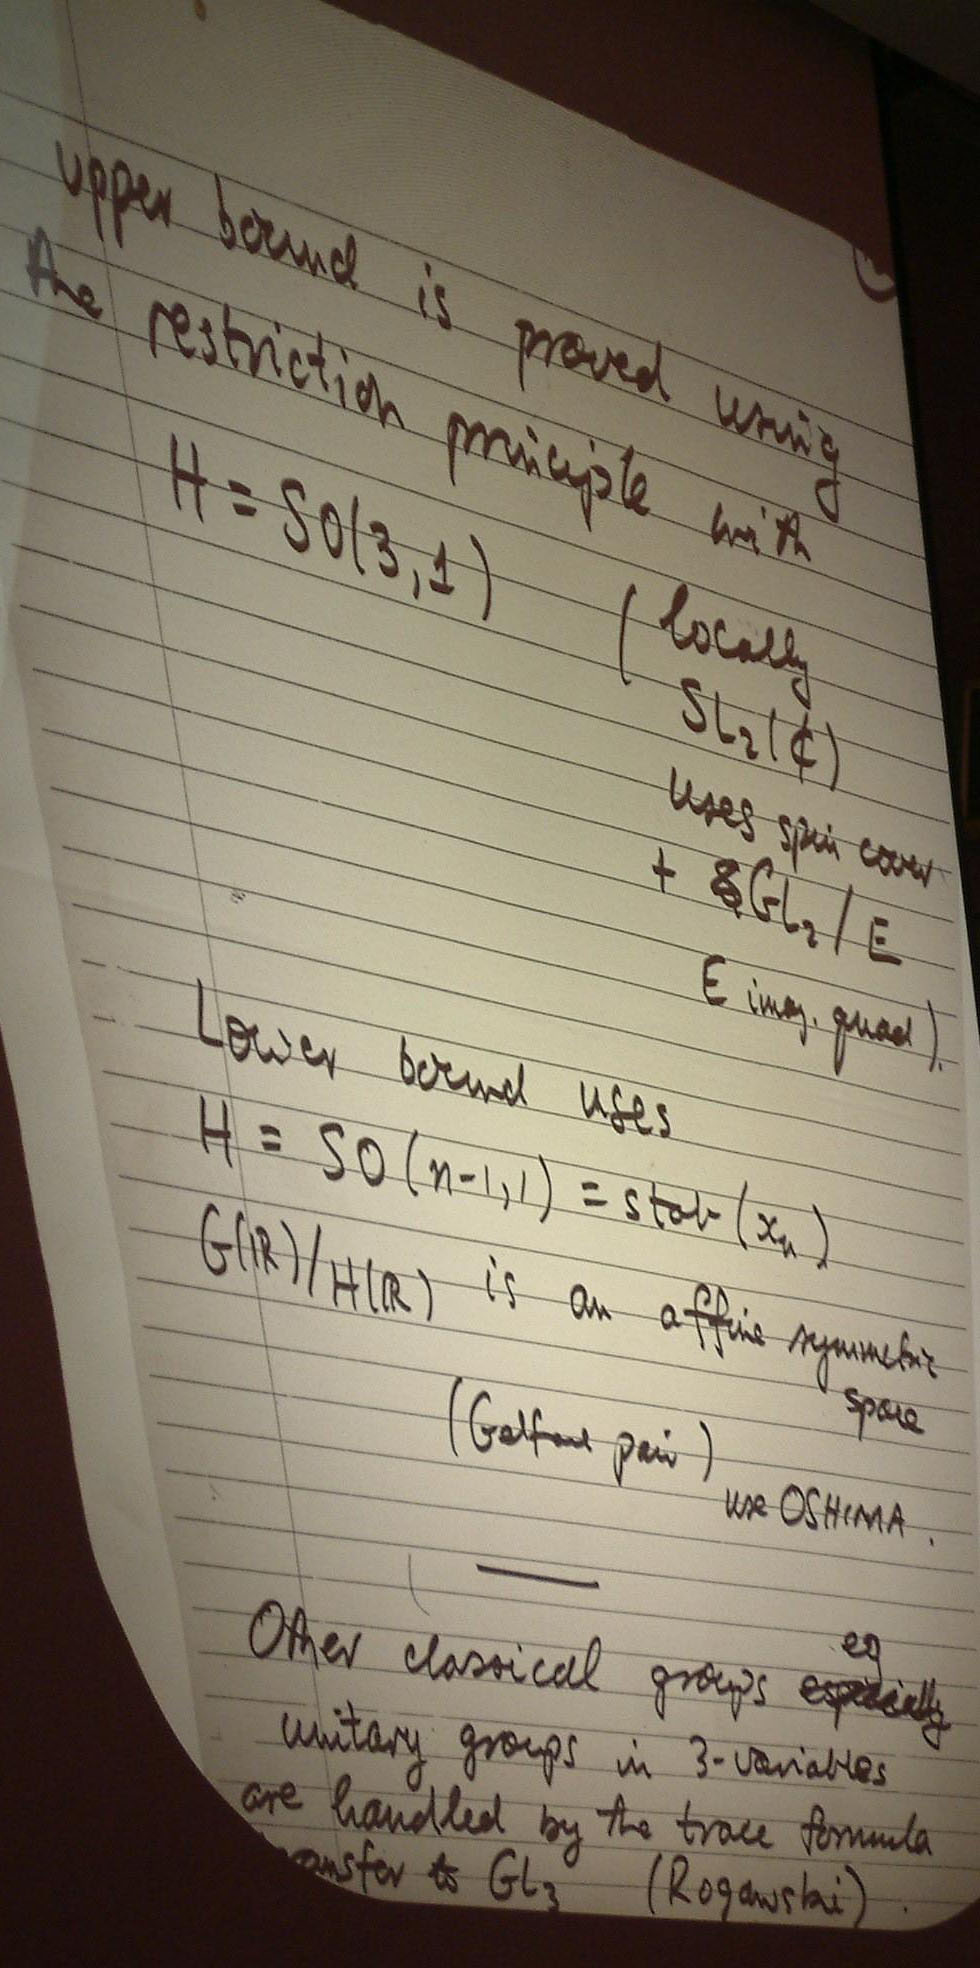 upper bound is proved using
the restriction principle with
H = SO(3,1) (locally
SL₂(ℂ)
uses spin cover
+ GL₂/E
E imag. quad).
Lower bound uses
H = SO(n-1,1) = stab(xₙ)
G(ℝ)/H(ℝ) is an affine symmetric
space
(Gelfand pair)
use OSHIMA.
Other classical groups eg
unitary groups in 3-variables
are handled by the trace formula
transfer to GL₃ (Rogawski).